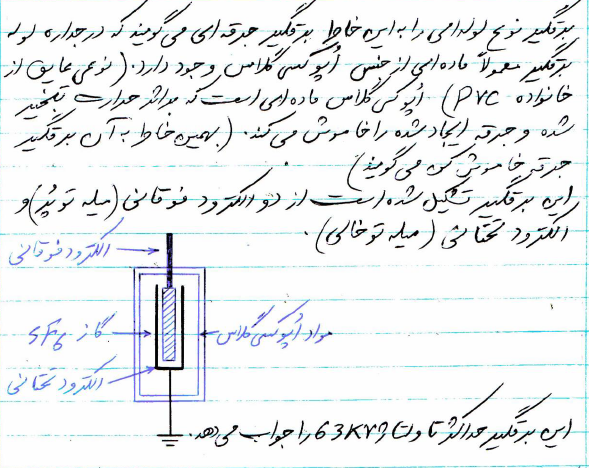 برقگیر نوع لوله‌ای را به این خاطر برقگیر جرقه‌ای می‌گویند که در جداره لوله
برقگیر معمولاً ماده‌ای از جنس اُپوکسی گلاس وجود دارد. (نوعی عایق از
خانواده PVC) اُپوکسی گلاس ماده‌ای است که در اثر حرارت تبخیر
شده و جرقه ایجاد شده را خاموش می‌کند. (بهمین خاطر به آن برقگیر
جرقه خاموش کن می‌گویند)
این برقگیر تشکیل شده است از دو الکترود فوقانی (میله توپُر) و
الکترود تحتانی (میله توخالی).
الکترود فوقانی
گاز SF6
مواد اُپوکسی گلاس
الکترود تحتانی
این برقگیر حداکثر تا ولتاژ 63KV را جواب می‌دهد.